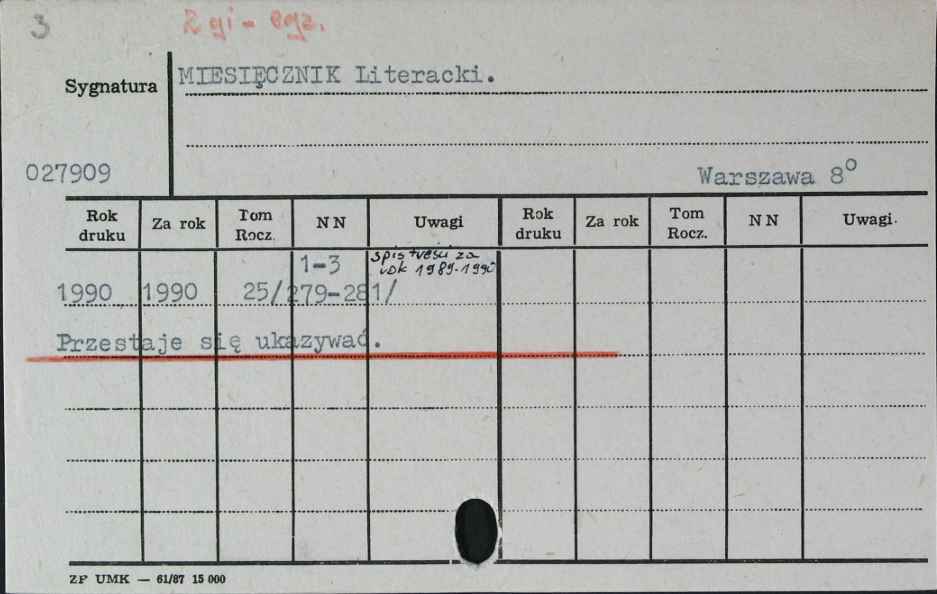 3
2 gi - egz.
MIESIĘCZNIK Literacki.
Sygnatura
027909
Warszawa 8°
Rok druku Za rok Tom Rocz. N N Uwagi Rok druku Za rok Tom Rocz. N N Uwagi.
1-3 spis treści za
rok 1989-1990
1990 1990 25/279-281/
Przestaje się ukazywać.
ZP UMK — 61/87 15 000